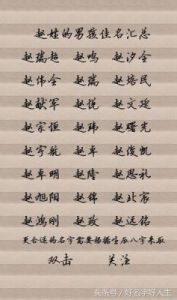 赵姓的男孩佳名汇总
赵瑞超 赵鸣 赵汐全
赵伟全 赵瑞 赵培民
赵献军 赵悦 赵文碇
赵宗恒 赵玮 赵曙光
赵宇航 赵卓 赵俊凯
赵卓明 赵隆 赵思礼
赵旭阳 赵锦 赵北宸
赵鸿刚 赵政 赵远铭
更合适的名字需要根据生辰八字来取
双击 关注
头条号/好名字好人生